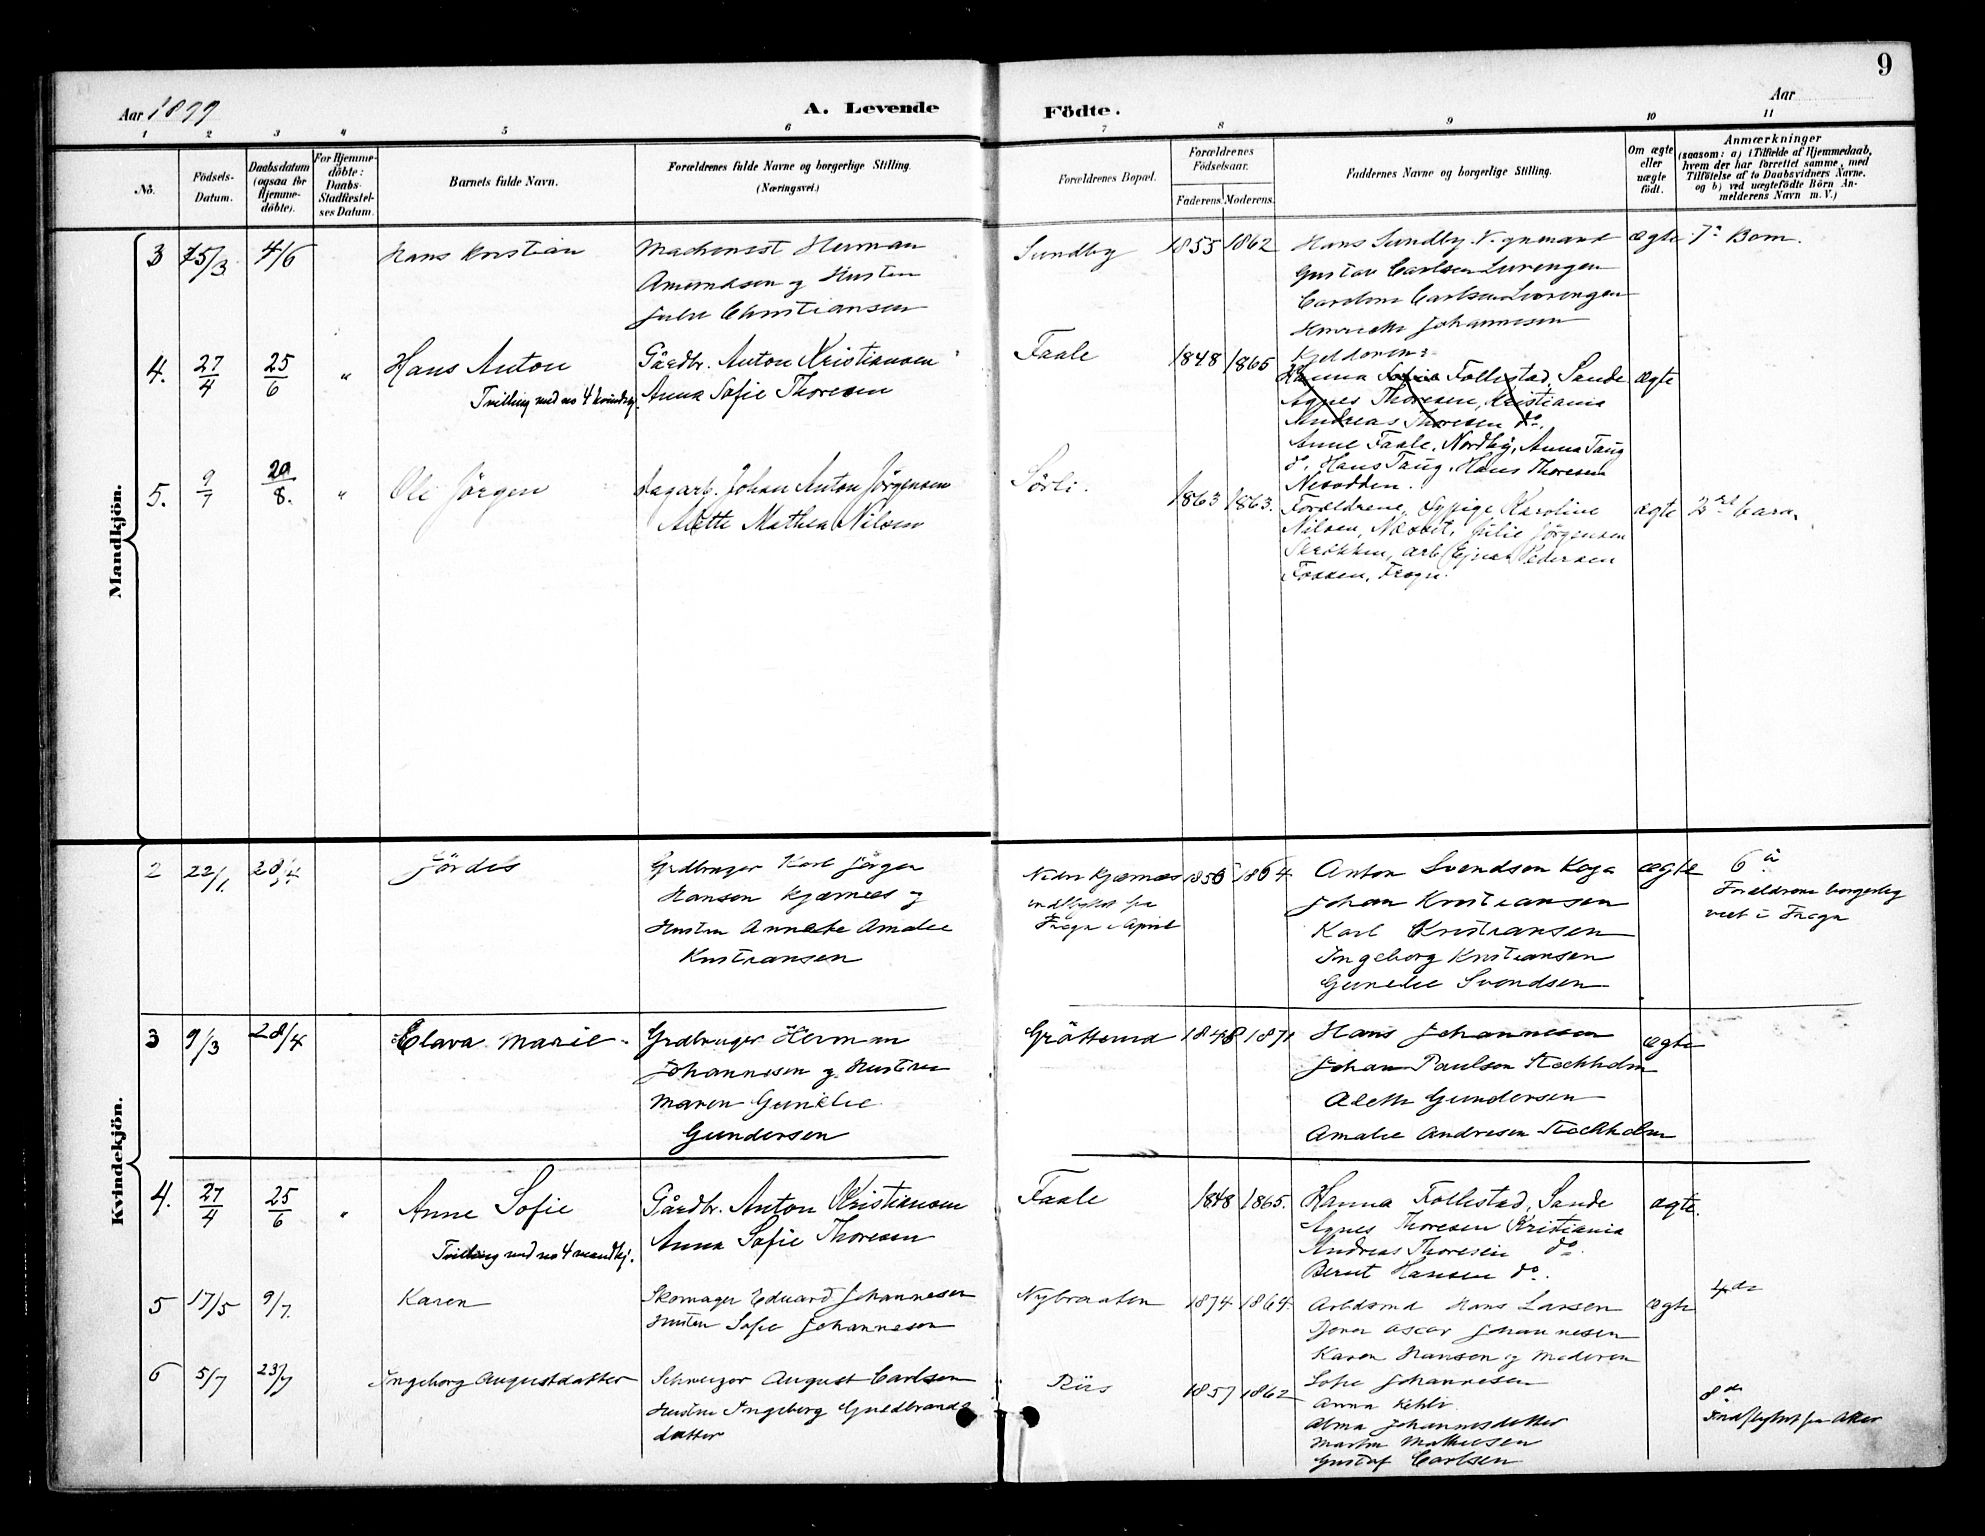 9
Aar 1899
A. Levende Födte.
Aar
1 2 3 4 5 6 7 8 9 10 11
No.
Födsels-Datum.
Daabsdatum (ogsaa for Hjemme-döbte).
For Hjemme-döbte: Daabs-Stadfæstel-ses Datum.
Barnets fulde Navn.
Forældrenes fulde Navne og borgerlige Stilling.
(Næringsvei.)
Forældrenes Bopæl.
Forældrenes Födselsaar.
Faderens. Moderens.
Faddernes Navne og borgerlige Stilling.
Om ægte eller uægte födt.
Anmærkninger
(saasom: a) i Tilfælde af Hjemmedaab, hvem der har forrettet samme, med Tilföielse af to Daabsvidners Navne, og b) ved uægtefödte Börn An-melderens Navn m. V.)
Mandkjön.
3 15/3 4/6 Hans Kristian
Machinist Herman
Amundsen og Hustru
Julie Christiansen
Sundby 1855 1862
Hans Sundby
Gustav Carlsen Lurengen
Caroline Carlsen Lurengen
Henriette Johannesen
ægte 7de Barn.
4. 27/4 25/6 " Hans Anton
Tvilling med no 4 kvindekj.
Gårdbr. Anton Kristiansen
Anna Sofie Thoresen
Faale 1848 1865
Forældrene:
Hanna Sofie Follestad, Sande
Agnes Thoresen, Kristiania
Andreas Thoresen do.
Anne Faale, Nordby, Anna Taug
do, Hans Taug, Hans Thoresen
Nesodden.
ægte
5. 9/7 20/8. " Ole Jörgen
Dagarb. Johan Anton Jörgensen
Alette Mathea Nilsen
Sörli. 1863 1863.
Forældrene, Sypige Karoline
Nilsen, Næsset, Julie Jörgensen
Skökken, arb. Ejnar Pedersen
Fossen, Frogn.
ægte 2det barn
Kvindekjön.
2 22/1 28/4 Jördis
Grdbruger Karl Jörgen
Hansen Kjærnæs og
Hustru Annette Amalie
Kristiansen
Nedre Kjærnæs
indflyttet fra
Frogn i April
1856 1864
Anton Svendsen Koja
Johan Kristiansen
Karl Kristiansen
Ingeborg Kristiansen
Gunelie Svendsen
ægte
6
Forældrene borgerlig
viet i Frogn
3 9/3 28/4 Clara Marie
Grdbruger Herman
Johannesen og Hustru
Maren Gunelie
Gundersen
Grötterud 1848 1871
Hans Johannesen
Johan Paulsen Stockholm
Alette Gundersen
Amalie Andresen Stockholm
ægte
4. 27/4 25/6 " Anne Sofie
Tvilling med no 4 mandkj.
Gårdbr. Anton Kristiansen
Anna Sofie Thoresen
Faale 1848 1865.
Hanna Follestad, Sande
Agnes Thoresen Kristiania
Andreas Thoresen do.
Bernt Hansen do.
ægte.
5 17/5 9/7. Karen
Skomager Edvard Johannesen
Hustru Sofie Johannesen
Nybraaten 1874 1864
Arbdsmd Hans Larsen
Oscar Johannesen
Karen Hansen og Moderen
ægte 4de
6 5/7 23/7 Ingeborg Augustdatter
Schweizer August Carlsen
Hustru Ingeborg Guldbrands
datter
Riis 1857 1862
Sofie Johannesen
Anna
Alma Johannesdatter
Martin Mathiesen
Gustaf Carlsen
8de
Indflyttet fra Aker